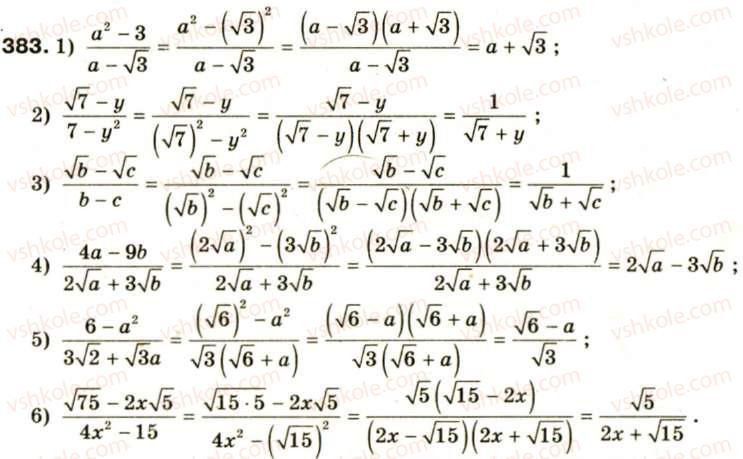 383. 1) (a² − 3)/(a − √3) = (a² − (√3)²)/(a − √3) = ((a − √3)(a + √3))/(a − √3) = a + √3 ;
2) (√7 − y)/(7 − y²) = (√7 − y)/((√7)² − y²) = (√7 − y)/((√7 − y)(√7 + y)) = 1/(√7 + y) ;
3) (√b − √c)/(b − c) = (√b − √c)/((√b)² − (√c)²) = (√b − √c)/((√b − √c)(√b + √c)) = 1/(√b + √c) ;
4) (4a − 9b)/(2√a + 3√b) = ((2√a)² − (3√b)²)/(2√a + 3√b) = ((2√a − 3√b)(2√a + 3√b))/(2√a + 3√b) = 2√a − 3√b ;
5) (6 − a²)/(3√2 + √3a) = ((√6)² − a²)/(√3(√6 + a)) = ((√6 − a)(√6 + a))/(√3(√6 + a)) = (√6 − a)/√3 ;
6) (√75 − 2x√5)/(4x² − 15) = (√(15 · 5) − 2x√5)/(4x² − (√15)²) = (√5(√15 − 2x))/((2x − √15)(2x + √15)) = √5/(2x + √15) .